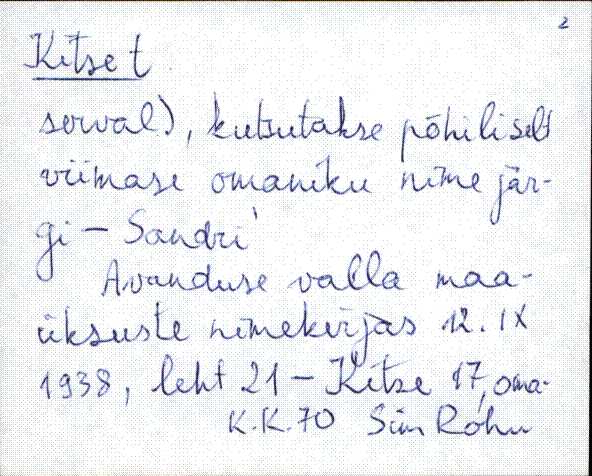 2
Kitse t
serval), kutsutakse põhiliselt
viimase omaniku nime jär-
gi – Sandri
Avanduse valla maa-
üksuste nimekirjas 12. IX
1938, leht 21 – Kitse 17, oma-
K.K. 70 Siim Rohu